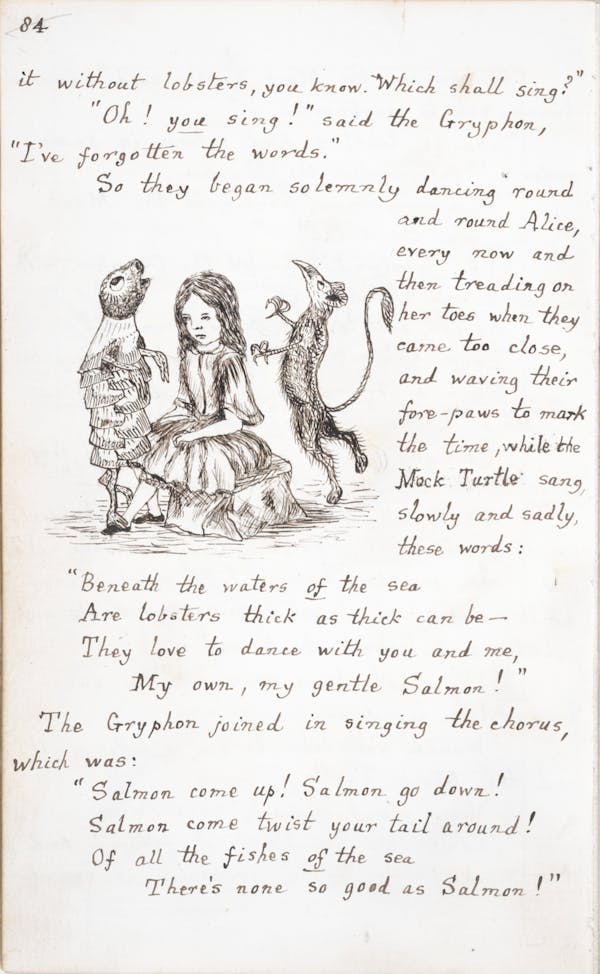 84
it without lobsters, you know. Which shall sing?"
"Oh! you sing!" said the Gryphon,
"I've forgotten the words."
So they began solemnly dancing round
and round Alice,
every now and
then treading on
her toes when they
came too close,
and waving their
fore-paws to mark
the time, while the
Mock Turtle sang,
slowly and sadly,
these words:
"Beneath the waters of the sea
Are lobsters thick as thick can be—
They love to dance with you and me,
My own, my gentle Salmon!"
The Gryphon joined in singing the chorus,
which was:
"Salmon come up! Salmon go down!
Salmon come twist your tail around!
Of all the fishes of the sea
There's none so good as Salmon!"